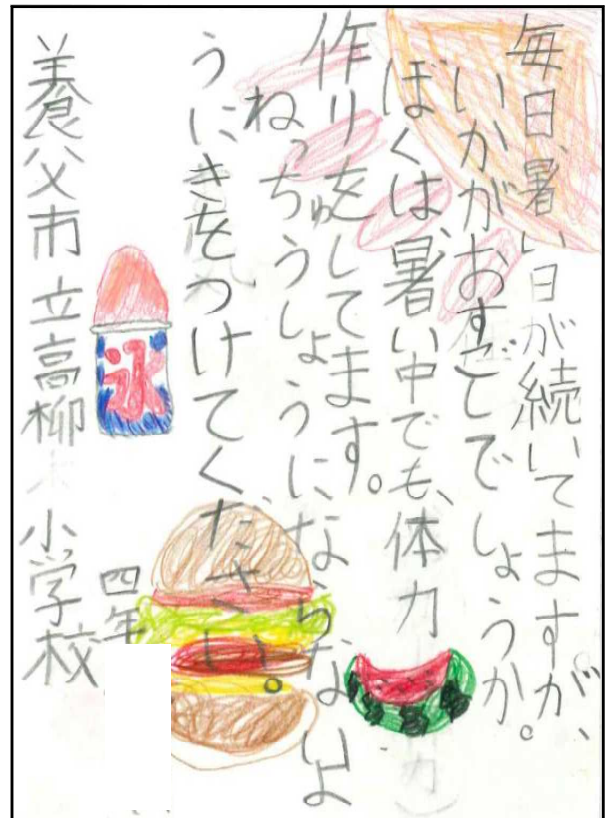 毎日、暑い日が続いてますが、
いかがおすごしでしょうか。
ぼくは、暑い中でも、体力
作りをしてます。
ねっちゅうしょうにならないよ
うにきをつけてください。
氷
養父市立高柳小学校
四年